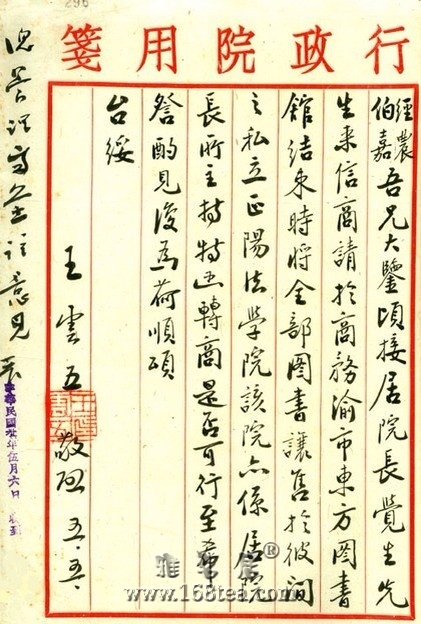 行政院用箋
經農
伯嘉
吾兄大鑒頃接居院長覺生先
生來信商請於商務渝市東方圖書
館結束時將全部圖書讓售於彼間
之私立正陽法學院該院亦係居院
長所主持特函轉商是否可行至希
詧酌見復為荷順頌
台綏
王雲五 敬啟 五.五.
意見
民國 年伍月六日 收到
www.168tea.com